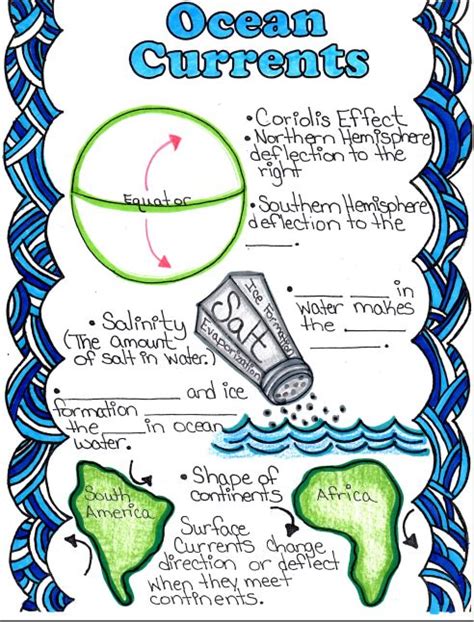 Ocean
Currents
• Coriolis Effect
• Northern Hemisphere
deflection to the
right
Equator
• Southern Hemisphere
deflection to the
____.
• ____ ____ in
water makes
the ____
Ice Formation
Salt
Evaporization
• Salinity
(The amount
of salt in water.)
• ____ and ice
formation ____
the ____ in ocean
water.
• Shape of
continents
South
America
Africa
Surface
Currents change
direction or deflect
when they meet
continents.